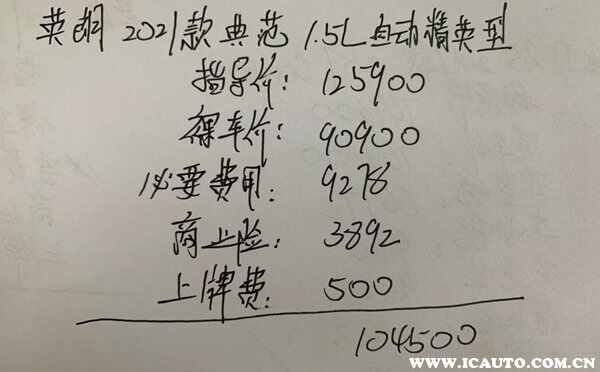 英朗 2021款典范 1.5L自动精英型
指导价: 125900
裸车价: 90900
必要费用: 9278
商业险: 3892
上牌费: 500
104500
WWW.ICAUTO.COM.CN